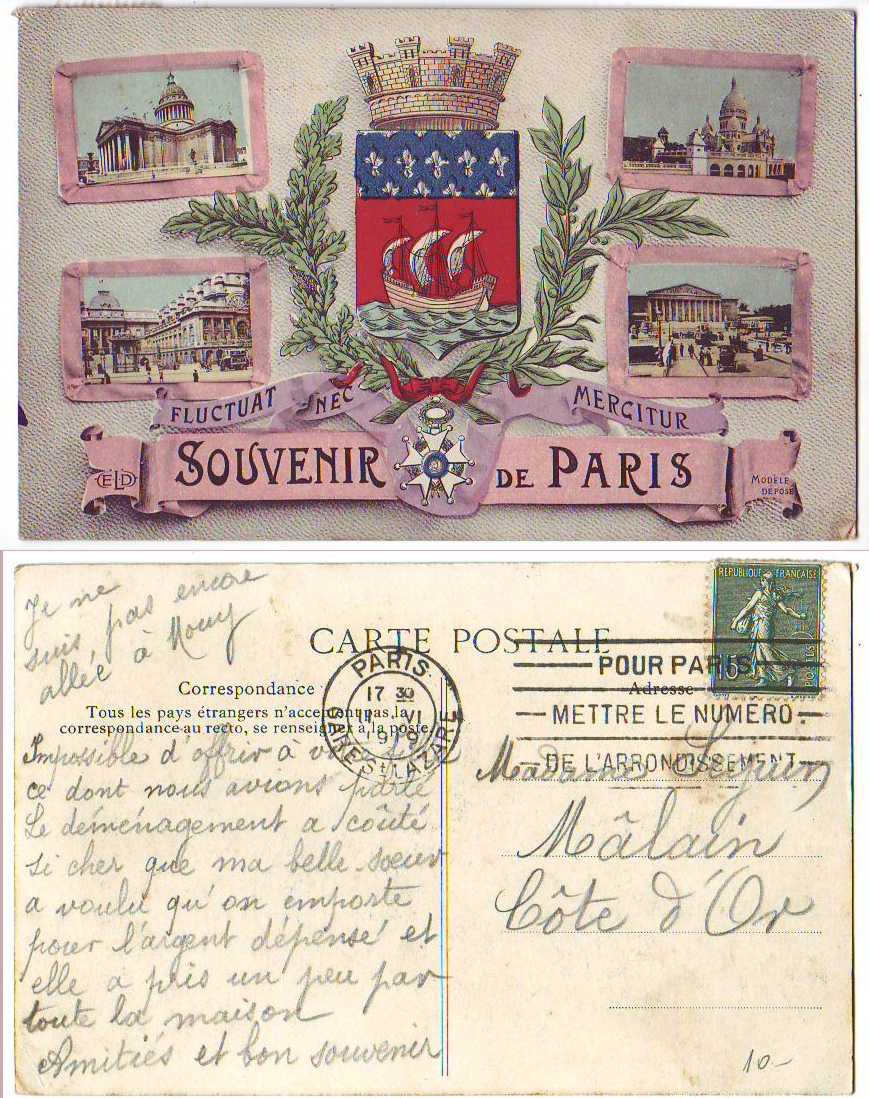 FLUCTUAT NEC MERGITUR
ELD SOUVENIR DE PARIS MODÈLE DÉPOSÉ
Je ne
suis pas encore
allée à
CARTE POSTALE
REPUBLIQUE FRANÇAISE
15
POSTES
PARIS
17 30
VI
GARE ST LAZARE
POUR PARIS
METTRE LE NUMERO
DE L'ARRONDISSEMENT
Correspondance
Adresse
Tous les pays étrangers n'acceptent pas la
correspondance au recto, se renseigner à la poste.
Impossible d'offrir à
ce dont nous avions parlé
Le déménagement a coûté
si cher que ma belle-sœur
a voulu qu'on emporte
pour l'argent dépensé et
elle a pris un peu par
toute la maison
Amitiés et bon souvenir
Madame
Mâlain
Côte d'Or
10-